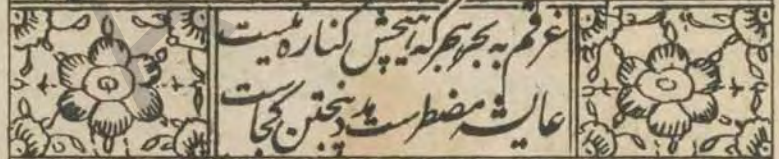 غرقم به بحر هجر که هیچش کناره نیست
عایشه مضطر است مدد پنجتن کجاست